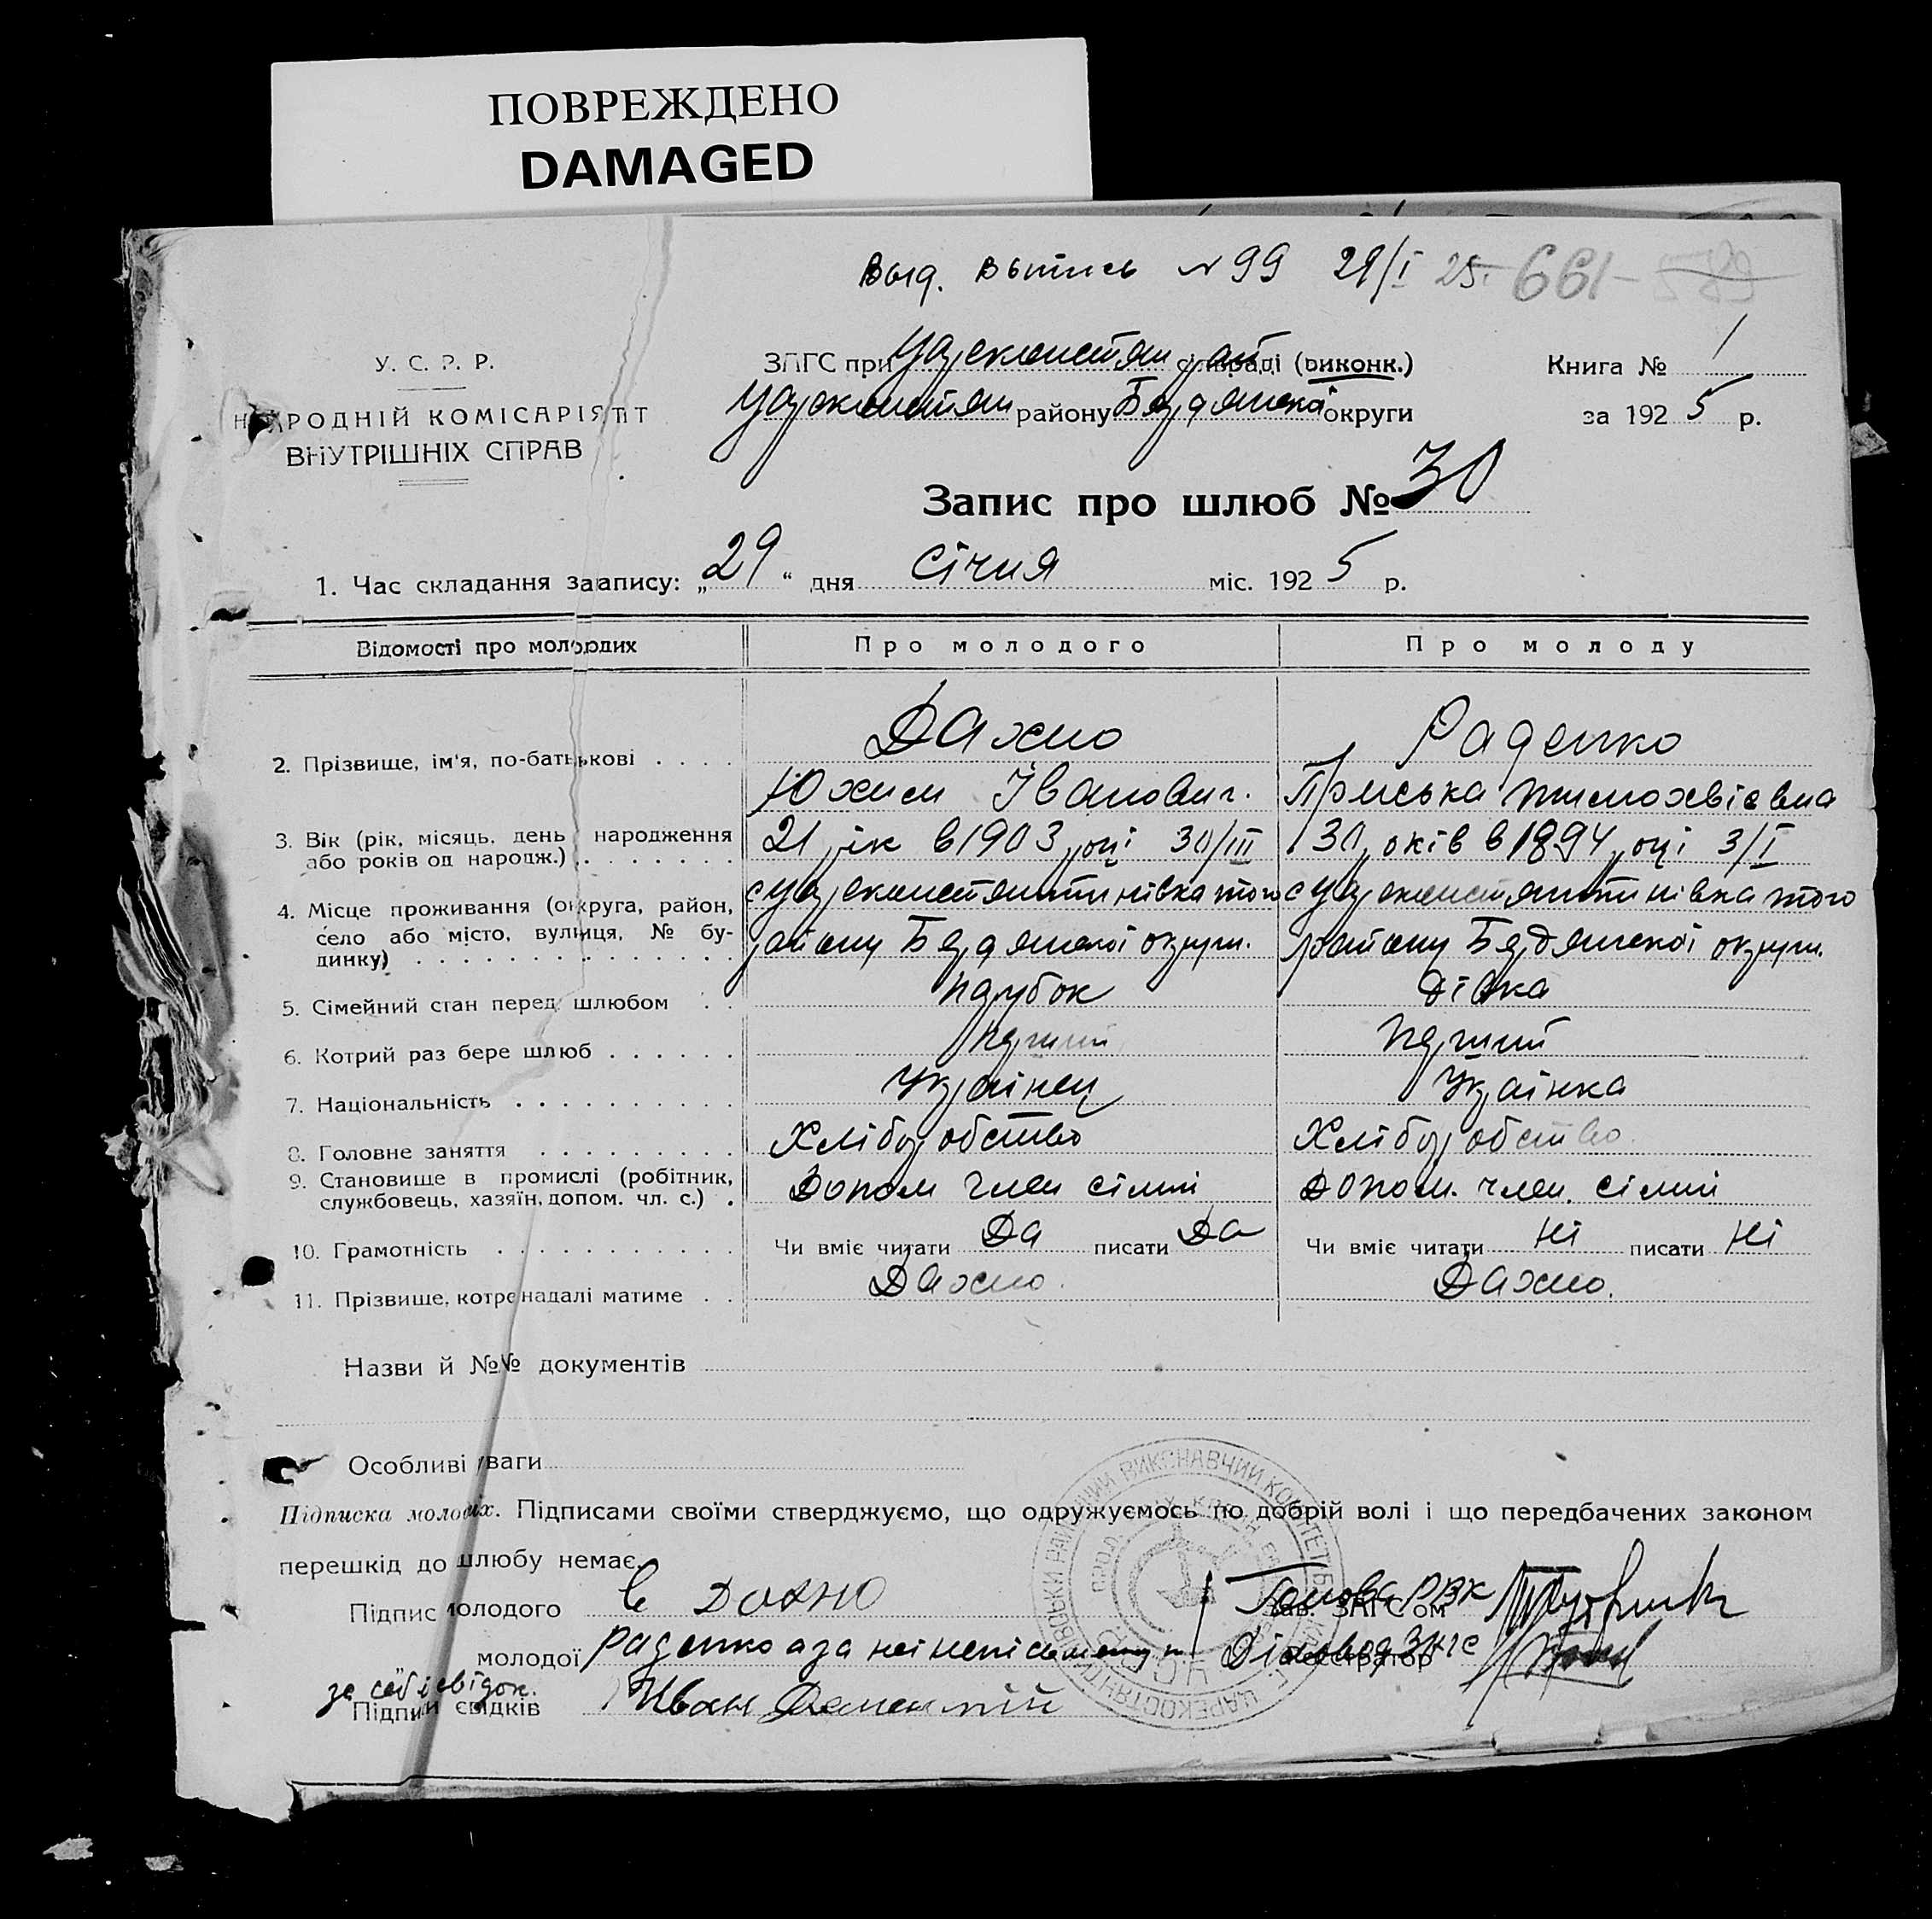 ПОВРЕЖДЕНО
DAMAGED
Выд. выпись № 99 29/I 25. 661 - 589
У. С. Р. Р.
НАРОДНІЙ КОМІСАРІЯТ
ВНУТРІШНІХ СПРАВ
ЗАГС при Цареконстян рай (виконк.)
Цареконстян району Бердянської округи
Книга № 1
за 1925 р.
Запис про шлюб № 30
1. Час складання запису: „29“ дня Січня міс. 1925 р.
Відомості про молодих Про молодого Про молоду
2. Прізвище, ім'я, по-батькові . . . . Дахно Раденко
Юхим Іванович. Приська Тимохвієвна
3. Вік (рік, місяць, день народження або років од народж.) . . . . . . . 21 рік в 1903 році 30/III 30 років в 1894 році 3/I
4. Місце проживання (округа, район, село або місто, вулиця, № будинку) . . . . . . . . . . . . . . с Цареконстянтинівка того с Цареконстянтинівка того
району Бердянської округи. району Бердянської округи.
5. Сімейний стан перед шлюбом . . Парубок Дівка
6. Котрий раз бере шлюб . . . . . . Перший Перший
7. Національність . . . . . . . . . . Українец Українка
8. Головне заняття . . . . . . . . . Хліборобство Хліборобство.
9. Становище в промислі (робітник, службовець, хазяїн, допом. чл. с.) . Допом член сімьи Допом. член. сімьи
10. Грамотність . . . . . . . . . . . Чи вміє читати Да писати Да Чи вміє читати Ні писати Ні
11. Прізвище, котре надалі матиме . . Дахно. Дахно.
Назви й №№ документів
Особливі уваги
Підписка молодих. Підписами своїми стверджуємо, що одружуємось по добрій волі і що передбачених законом
перешкід до шлюбу немає.
Підпис молодого Е Дахно Голова РВК
Зав. ЗАГС'ом
молодої Раденко а за неі неписьменну Діловод ЗАГС
Реєстратор
за себе і свідок.
Підписи свідків Иван